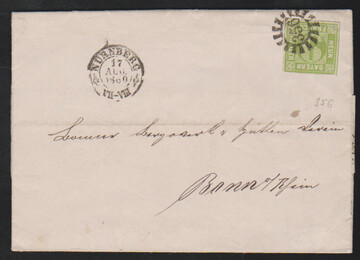 NÜRNBERG
17
AUG.
1860
VII-VIII
BAYERN
356
Bonner Bergwerk & Hütten Verein
Bonn a/Rhein